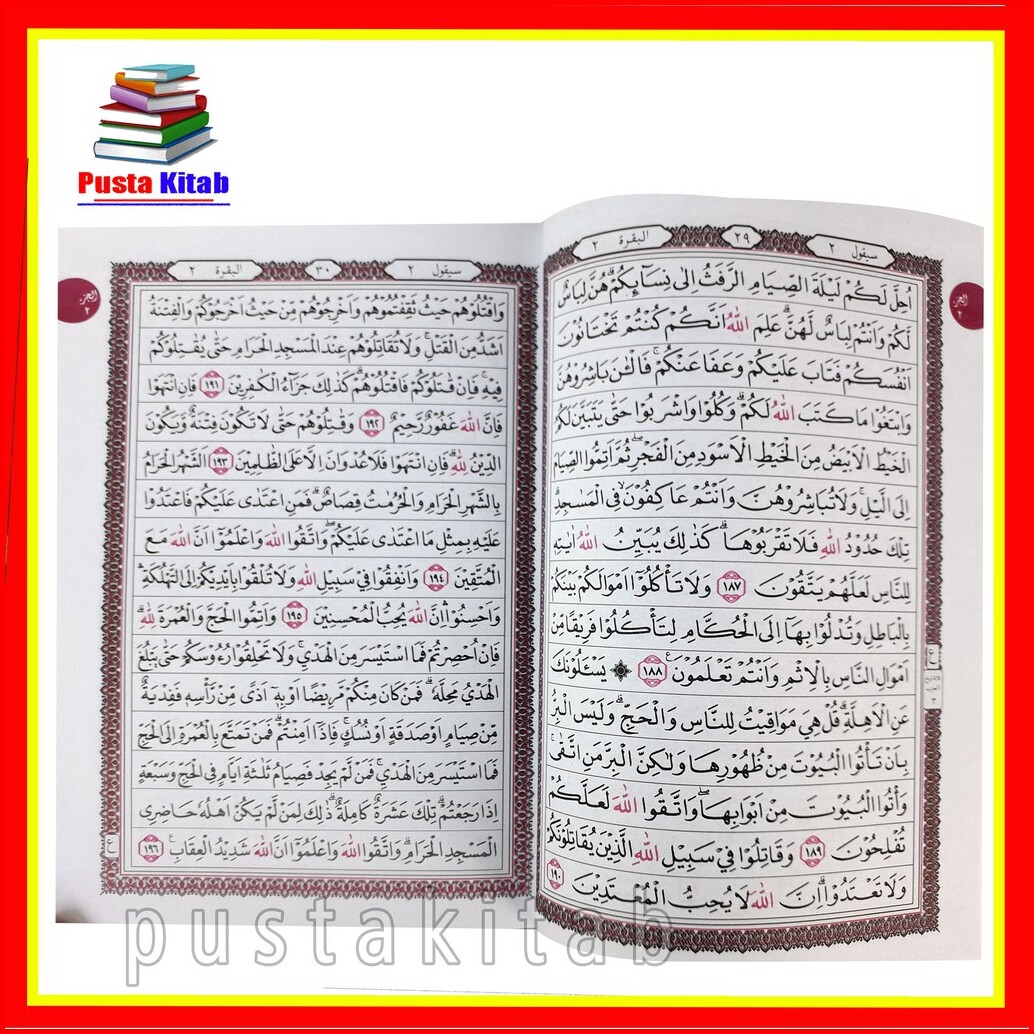 Pusta Kitab
سيقول ٢
٢٩
البقرة ٢
الجزء
٢
اُحِلَّ لَكُمْ لَيْلَةَ الصِّيَامِ الرَّفَثُ اِلٰى نِسَاۤىِٕكُمْۗ هُنَّ لِبَاسٌ
لَكُمْ وَاَنْتُمْ لِبَاسٌ لَهُنَّۗ عَلِمَ اللّٰهُ اَنَّكُمْ كُنْتُمْ تَخْتَانُوْنَ
اَنْفُسَكُمْ فَتَابَ عَلَيْكُمْ وَعَفَا عَنْكُمْۚ فَالْـٰٔنَ بَاشِرُوْهُنَّ
وَابْتَغُوْا مَا كَتَبَ اللّٰهُ لَكُمْۗ وَكُلُوْا وَاشْرَبُوْا حَتّٰى يَتَبَيَّنَ لَكُمُ
الْخَيْطُ الْاَبْيَضُ مِنَ الْخَيْطِ الْاَسْوَدِ مِنَ الْفَجْرِۖ ثُمَّ اَتِمُّوا الصِّيَامَ
اِلَى الَّيْلِۚ وَلَا تُبَاشِرُوْهُنَّ وَاَنْتُمْ عَاكِفُوْنَۙ فِى الْمَسٰجِدِۗ
تِلْكَ حُدُوْدُ اللّٰهِ فَلَا تَقْرَبُوْهَاۗ كَذٰلِكَ يُبَيِّنُ اللّٰهُ اٰيٰتِهٖ
لِلنَّاسِ لَعَلَّهُمْ يَتَّقُوْنَ ١٨٧ وَلَا تَأْكُلُوْٓا اَمْوَالَكُمْ بَيْنَكُمْ
بِالْبَاطِلِ وَتُدْلُوْا بِهَآ اِلَى الْحُكَّامِ لِتَأْكُلُوْا فَرِيْقًا مِّنْ
اَمْوَالِ النَّاسِ بِالْاِثْمِ وَاَنْتُمْ تَعْلَمُوْنَ ١٨٨ ۞ يَسْـَٔلُوْنَكَ
عَنِ الْاَهِلَّةِۗ قُلْ هِيَ مَوَاقِيْتُ لِلنَّاسِ وَالْحَجِّۗ وَلَيْسَ الْبِرُّ
بِاَنْ تَأْتُوا الْبُيُوْتَ مِنْ ظُهُوْرِهَا وَلٰكِنَّ الْبِرَّ مَنِ اتَّقٰىۚ
وَأْتُوا الْبُيُوْتَ مِنْ اَبْوَابِهَاۖ وَاتَّقُوا اللّٰهَ لَعَلَّكُمْ
تُفْلِحُوْنَ ١٨٩ وَقَاتِلُوْا فِيْ سَبِيْلِ اللّٰهِ الَّذِيْنَ يُقَاتِلُوْنَكُمْ
وَلَا تَعْتَدُوْاۗ اِنَّ اللّٰهَ لَا يُحِبُّ الْمُعْتَدِيْنَ ١٩٠
سيقول ٢
٣٠
البقرة ٢
الجزء
٢
وَاقْتُلُوْهُمْ حَيْثُ ثَقِفْتُمُوْهُمْ وَاَخْرِجُوْهُمْ مِّنْ حَيْثُ اَخْرَجُوْكُمْ وَالْفِتْنَةُ
اَشَدُّ مِنَ الْقَتْلِۚ وَلَا تُقَاتِلُوْهُمْ عِنْدَ الْمَسْجِدِ الْحَرَامِ حَتّٰى يُقٰتِلُوْكُمْ
فِيْهِۚ فَاِنْ قٰتَلُوْكُمْ فَاقْتُلُوْهُمْۗ كَذٰلِكَ جَزَاۤءُ الْكٰفِرِيْنَ ١٩١ فَاِنِ انْتَهَوْا
فَاِنَّ اللّٰهَ غَفُوْرٌ رَّحِيْمٌ ١٩٢ وَقٰتِلُوْهُمْ حَتّٰى لَا تَكُوْنَ فِتْنَةٌ وَّيَكُوْنَ
الدِّيْنُ لِلّٰهِۗ فَاِنِ انْتَهَوْا فَلَا عُدْوَانَ اِلَّا عَلَى الظّٰلِمِيْنَ ١٩٣ اَلشَّهْرُ الْحَرَامُ
بِالشَّهْرِ الْحَرَامِ وَالْحُرُمٰتُ قِصَاصٌۗ فَمَنِ اعْتَدٰى عَلَيْكُمْ فَاعْتَدُوْا
عَلَيْهِ بِمِثْلِ مَا اعْتَدٰى عَلَيْكُمْۖ وَاتَّقُوا اللّٰهَ وَاعْلَمُوْٓا اَنَّ اللّٰهَ مَعَ
الْمُتَّقِيْنَ ١٩٤ وَاَنْفِقُوْا فِيْ سَبِيْلِ اللّٰهِ وَلَا تُلْقُوْا بِاَيْدِيْكُمْ اِلَى التَّهْلُكَةِۛ
وَاَحْسِنُوْاۛ اِنَّ اللّٰهَ يُحِبُّ الْمُحْسِنِيْنَ ١٩٥ وَاَتِمُّوا الْحَجَّ وَالْعُمْرَةَ لِلّٰهِۗ
فَاِنْ اُحْصِرْتُمْ فَمَا اسْتَيْسَرَ مِنَ الْهَدْيِۚ وَلَا تَحْلِقُوْا رُءُوْسَكُمْ حَتّٰى يَبْلُغَ
الْهَدْيُ مَحِلَّهٗۗ فَمَنْ كَانَ مِنْكُمْ مَّرِيْضًا اَوْ بِهٖٓ اَذًى مِّنْ رَّأْسِهٖ فَفِدْيَةٌ
مِّنْ صِيَامٍ اَوْ صَدَقَةٍ اَوْ نُسُكٍۚ فَاِذَآ اَمِنْتُمْۗ فَمَنْ تَمَتَّعَ بِالْعُمْرَةِ اِلَى الْحَجِّ
فَمَا اسْتَيْسَرَ مِنَ الْهَدْيِۚ فَمَنْ لَّمْ يَجِدْ فَصِيَامُ ثَلٰثَةِ اَيَّامٍ فِى الْحَجِّ وَسَبْعَةٍ
اِذَا رَجَعْتُمْۗ تِلْكَ عَشَرَةٌ كَامِلَةٌۗ ذٰلِكَ لِمَنْ لَّمْ يَكُنْ اَهْلُهٗ حَاضِرِى
الْمَسْجِدِ الْحَرَامِۗ وَاتَّقُوا اللّٰهَ وَاعْلَمُوْٓا اَنَّ اللّٰهَ شَدِيْدُ الْعِقَابِ ١٩٦
pustakitab